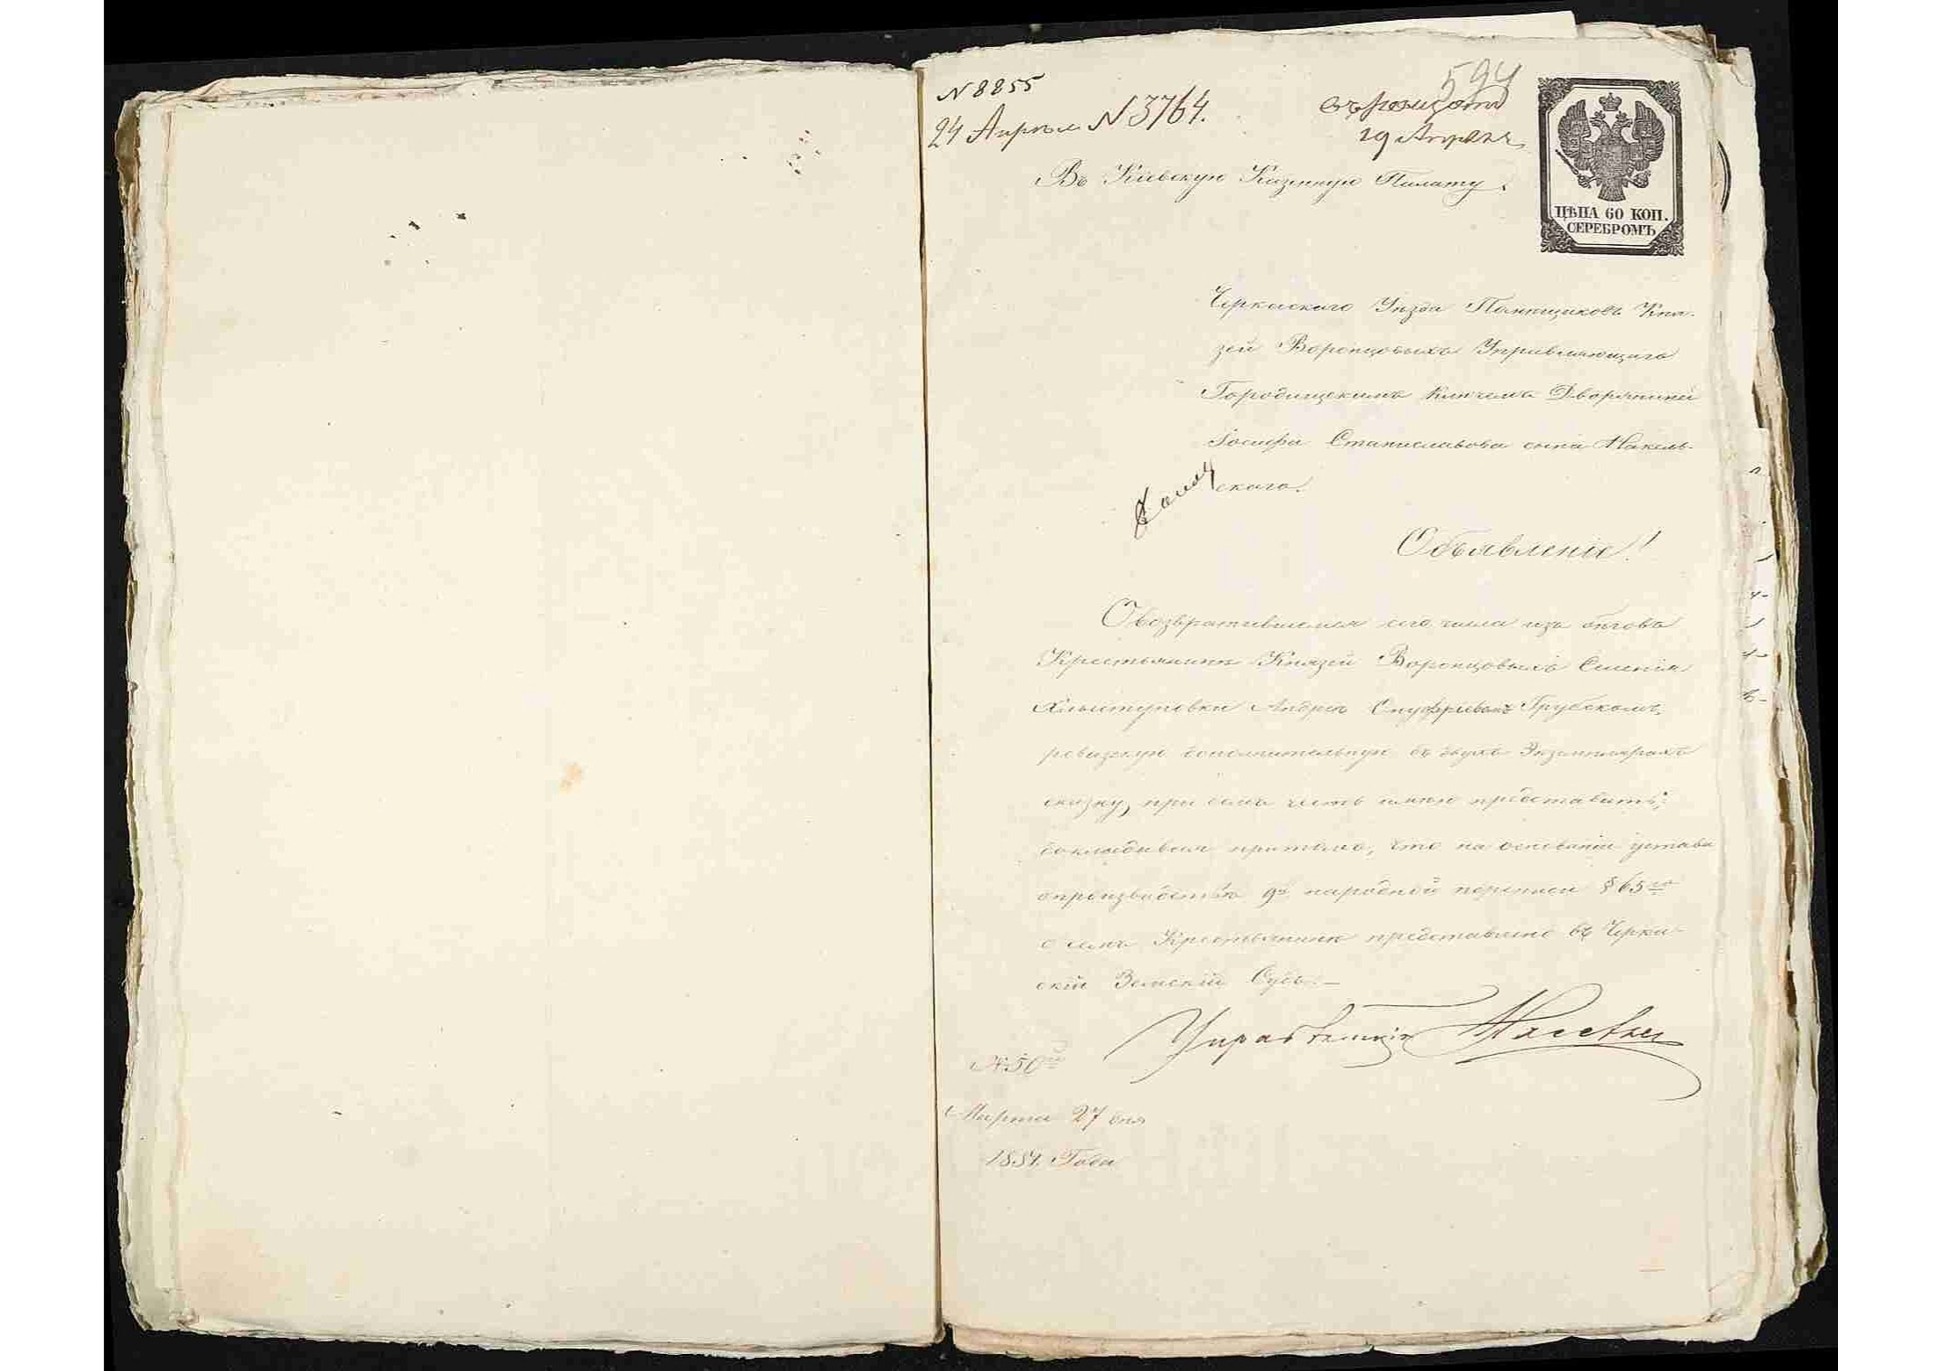 N 8855
24 Апрѣля N 3764.
594
29 Апрѣля
Въ Кіевскую Казенную Палату.
ЦѢНА 60 КОП.
СЕРЕБРОМЪ
Черкаскаго Уѣзда Помѣщиковъ Кня-
зей Воронцовыхъ Управляющаго
Городищскимъ Ключемъ Дворянина
Іосифа Станиславова сына Макель-
скаго.
Объявленіе!
О возвратившемся сего числа изъ бѣговъ
Крестьянинѣ Князей Воронцовыхъ Селенія
Хлыстуновки Андрѣѣ Онуфріевѣ Грубскомъ,
ревизскую дополнительную въ двухъ Экземплярахъ
сказку, при семъ честь имѣю представить;
докладывая притомъ, что на основаніи устава
опроизводствѣ 9й народной переписи § 65го
о семъ Крестьянинѣ представлено въ Черка-
скій Земскій Судъ.—
Управляющій
№ 50й
Марта 27 дня
1854. Года